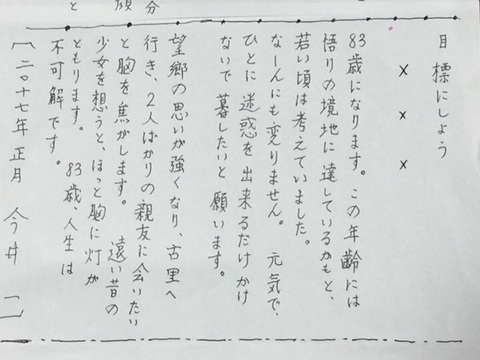 と
分
目標にしよう
× × ×
83歳になります。この年齢には
悟りの境地に達しているかもと、
若い頃は考えていました。
なーんにも変りません。元気で、
ひとに迷惑を出来るだけかけ
ないで暮したいと願います。
望郷の思いが強くなり、古里へ
行き、2人ばかりの親友に会いたい
と胸を焦がします。遠い昔の
少女を想うと、ほっと胸に灯が
ともります。83歳、人生は
不可解です。
〔二〇十七年正月 今井 一〕